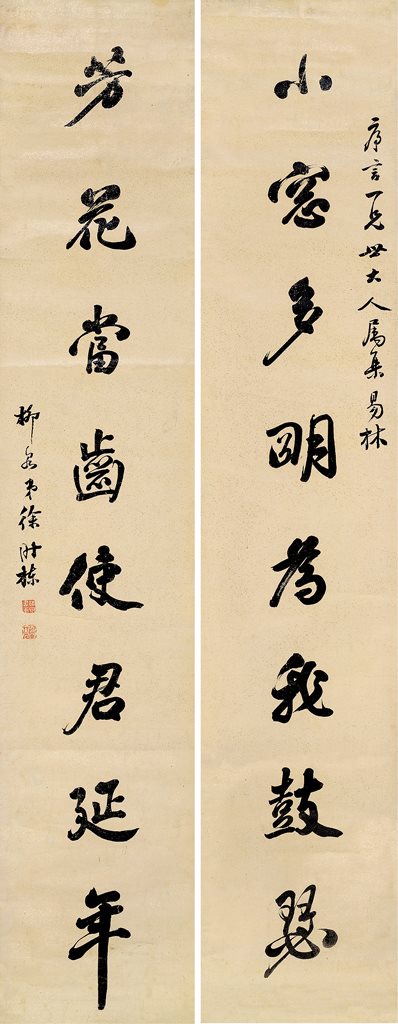 序言一兄世大人屬集易林
小窓多明為我鼓瑟
芳花當齒使君延年
柳泉弟徐時棟